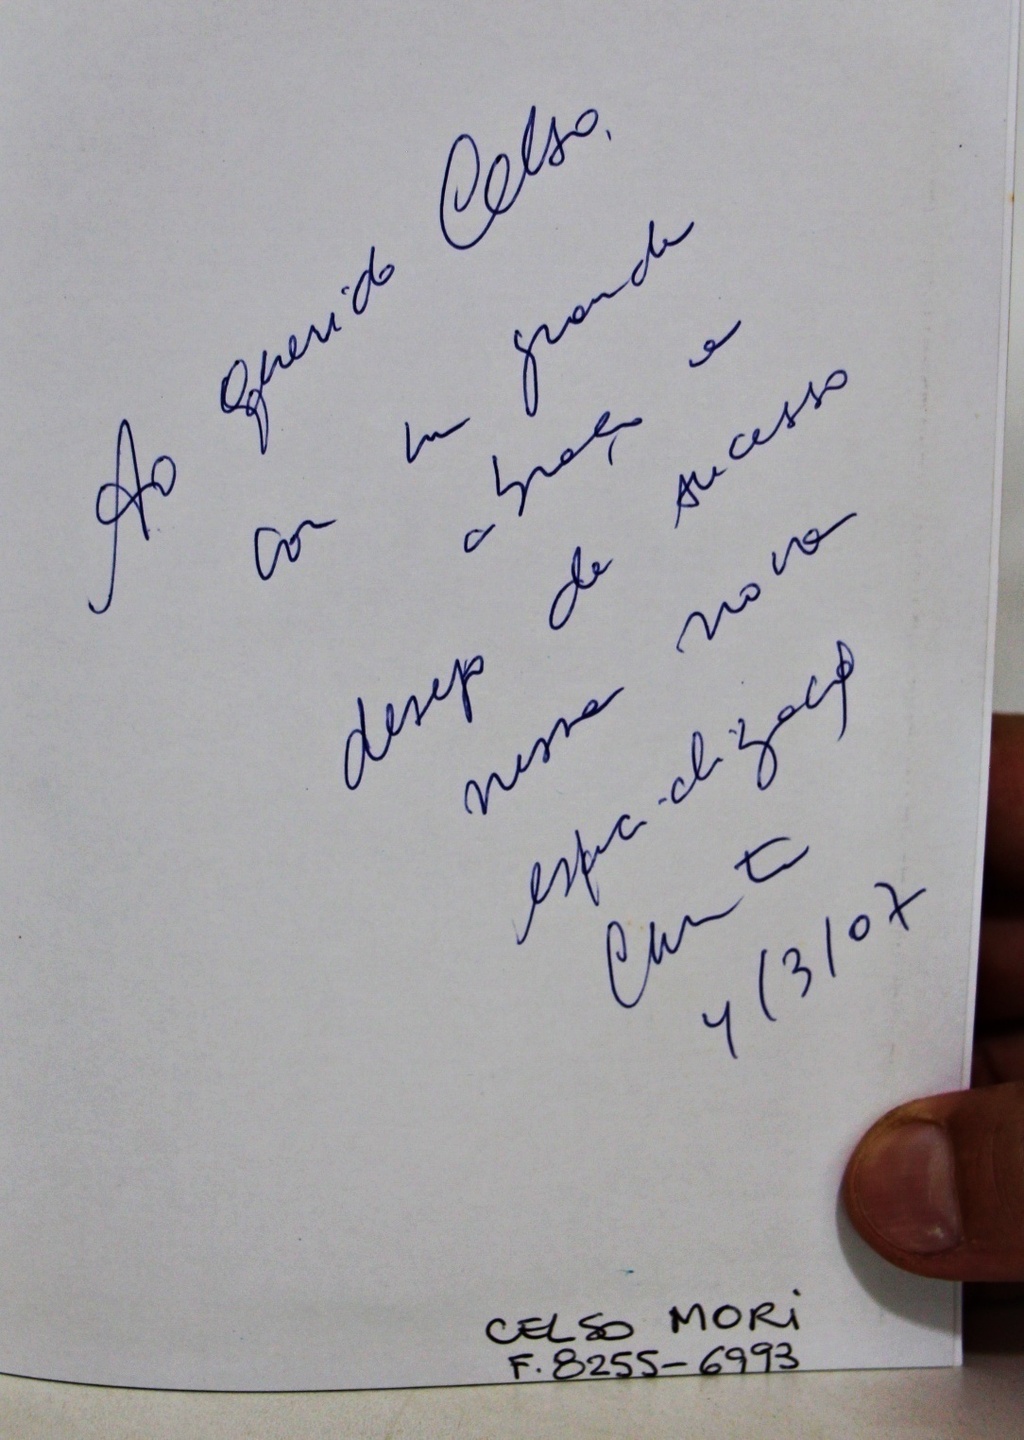 Ao querido Celso,
com um grande
abraço e
desejo de sucesso
nessa nova
especialização
4/3/07
CELSO MORI
F. 8255-6993